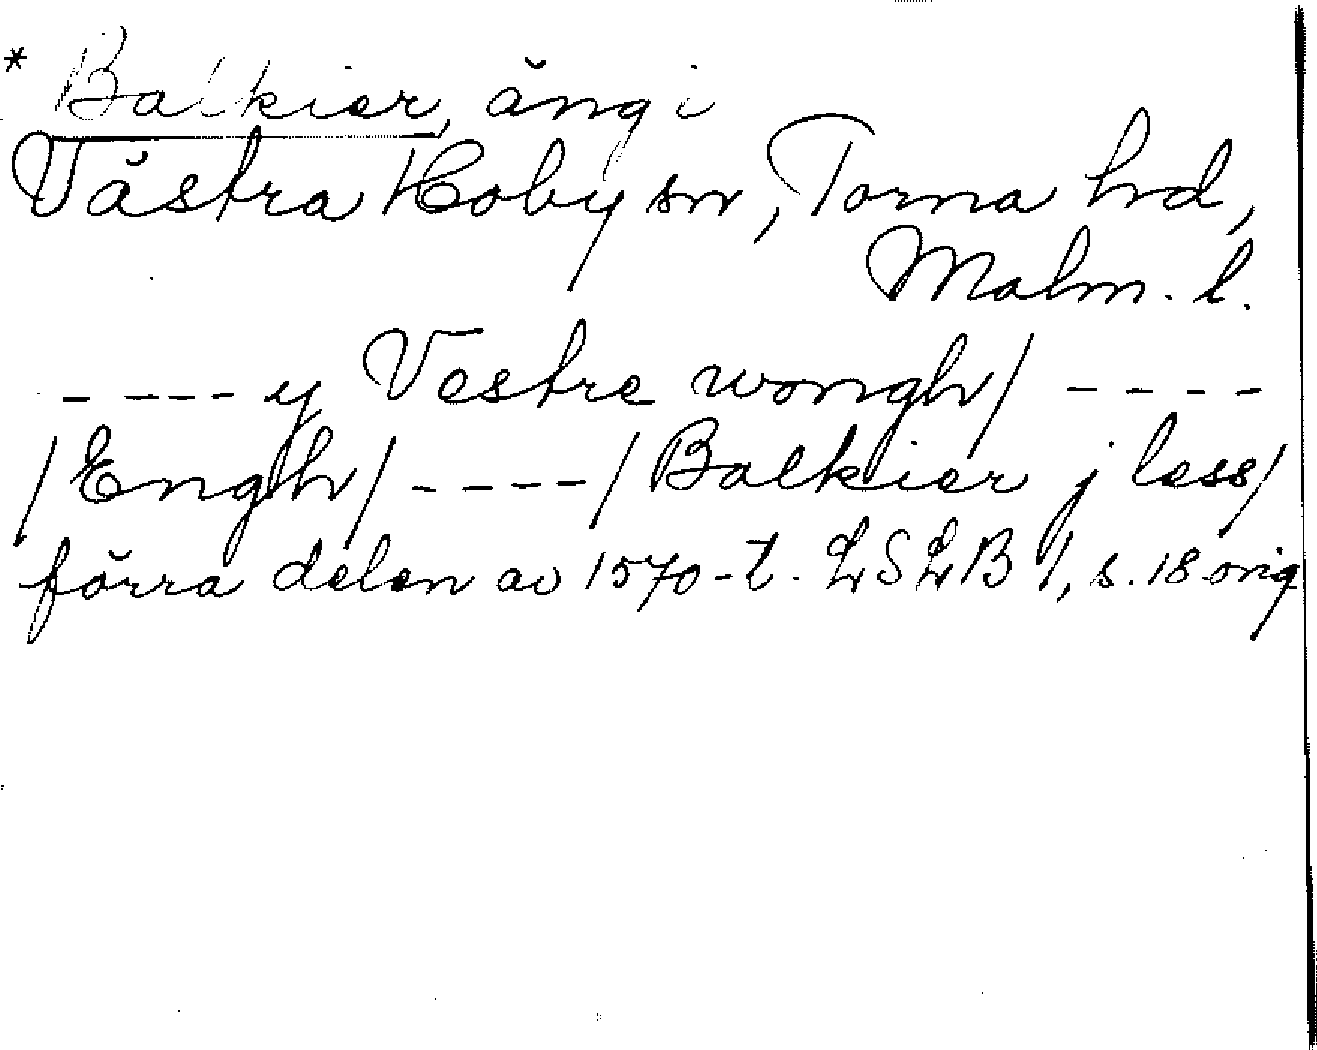 * Balkier, äng i
Västra Hoby sn, Torna hd,
Malm. l.
- - - - y Vestre wongh/ - - - -
/Engh/ - - - - /Balkier j less/
förra delen av 1570-t. LSLB I, s. 18 orig